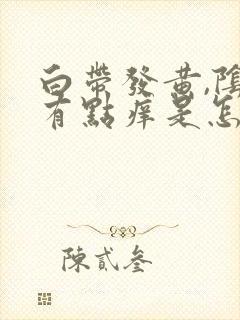 白帶發黃,陰
有點癢是怎
陳貳叁